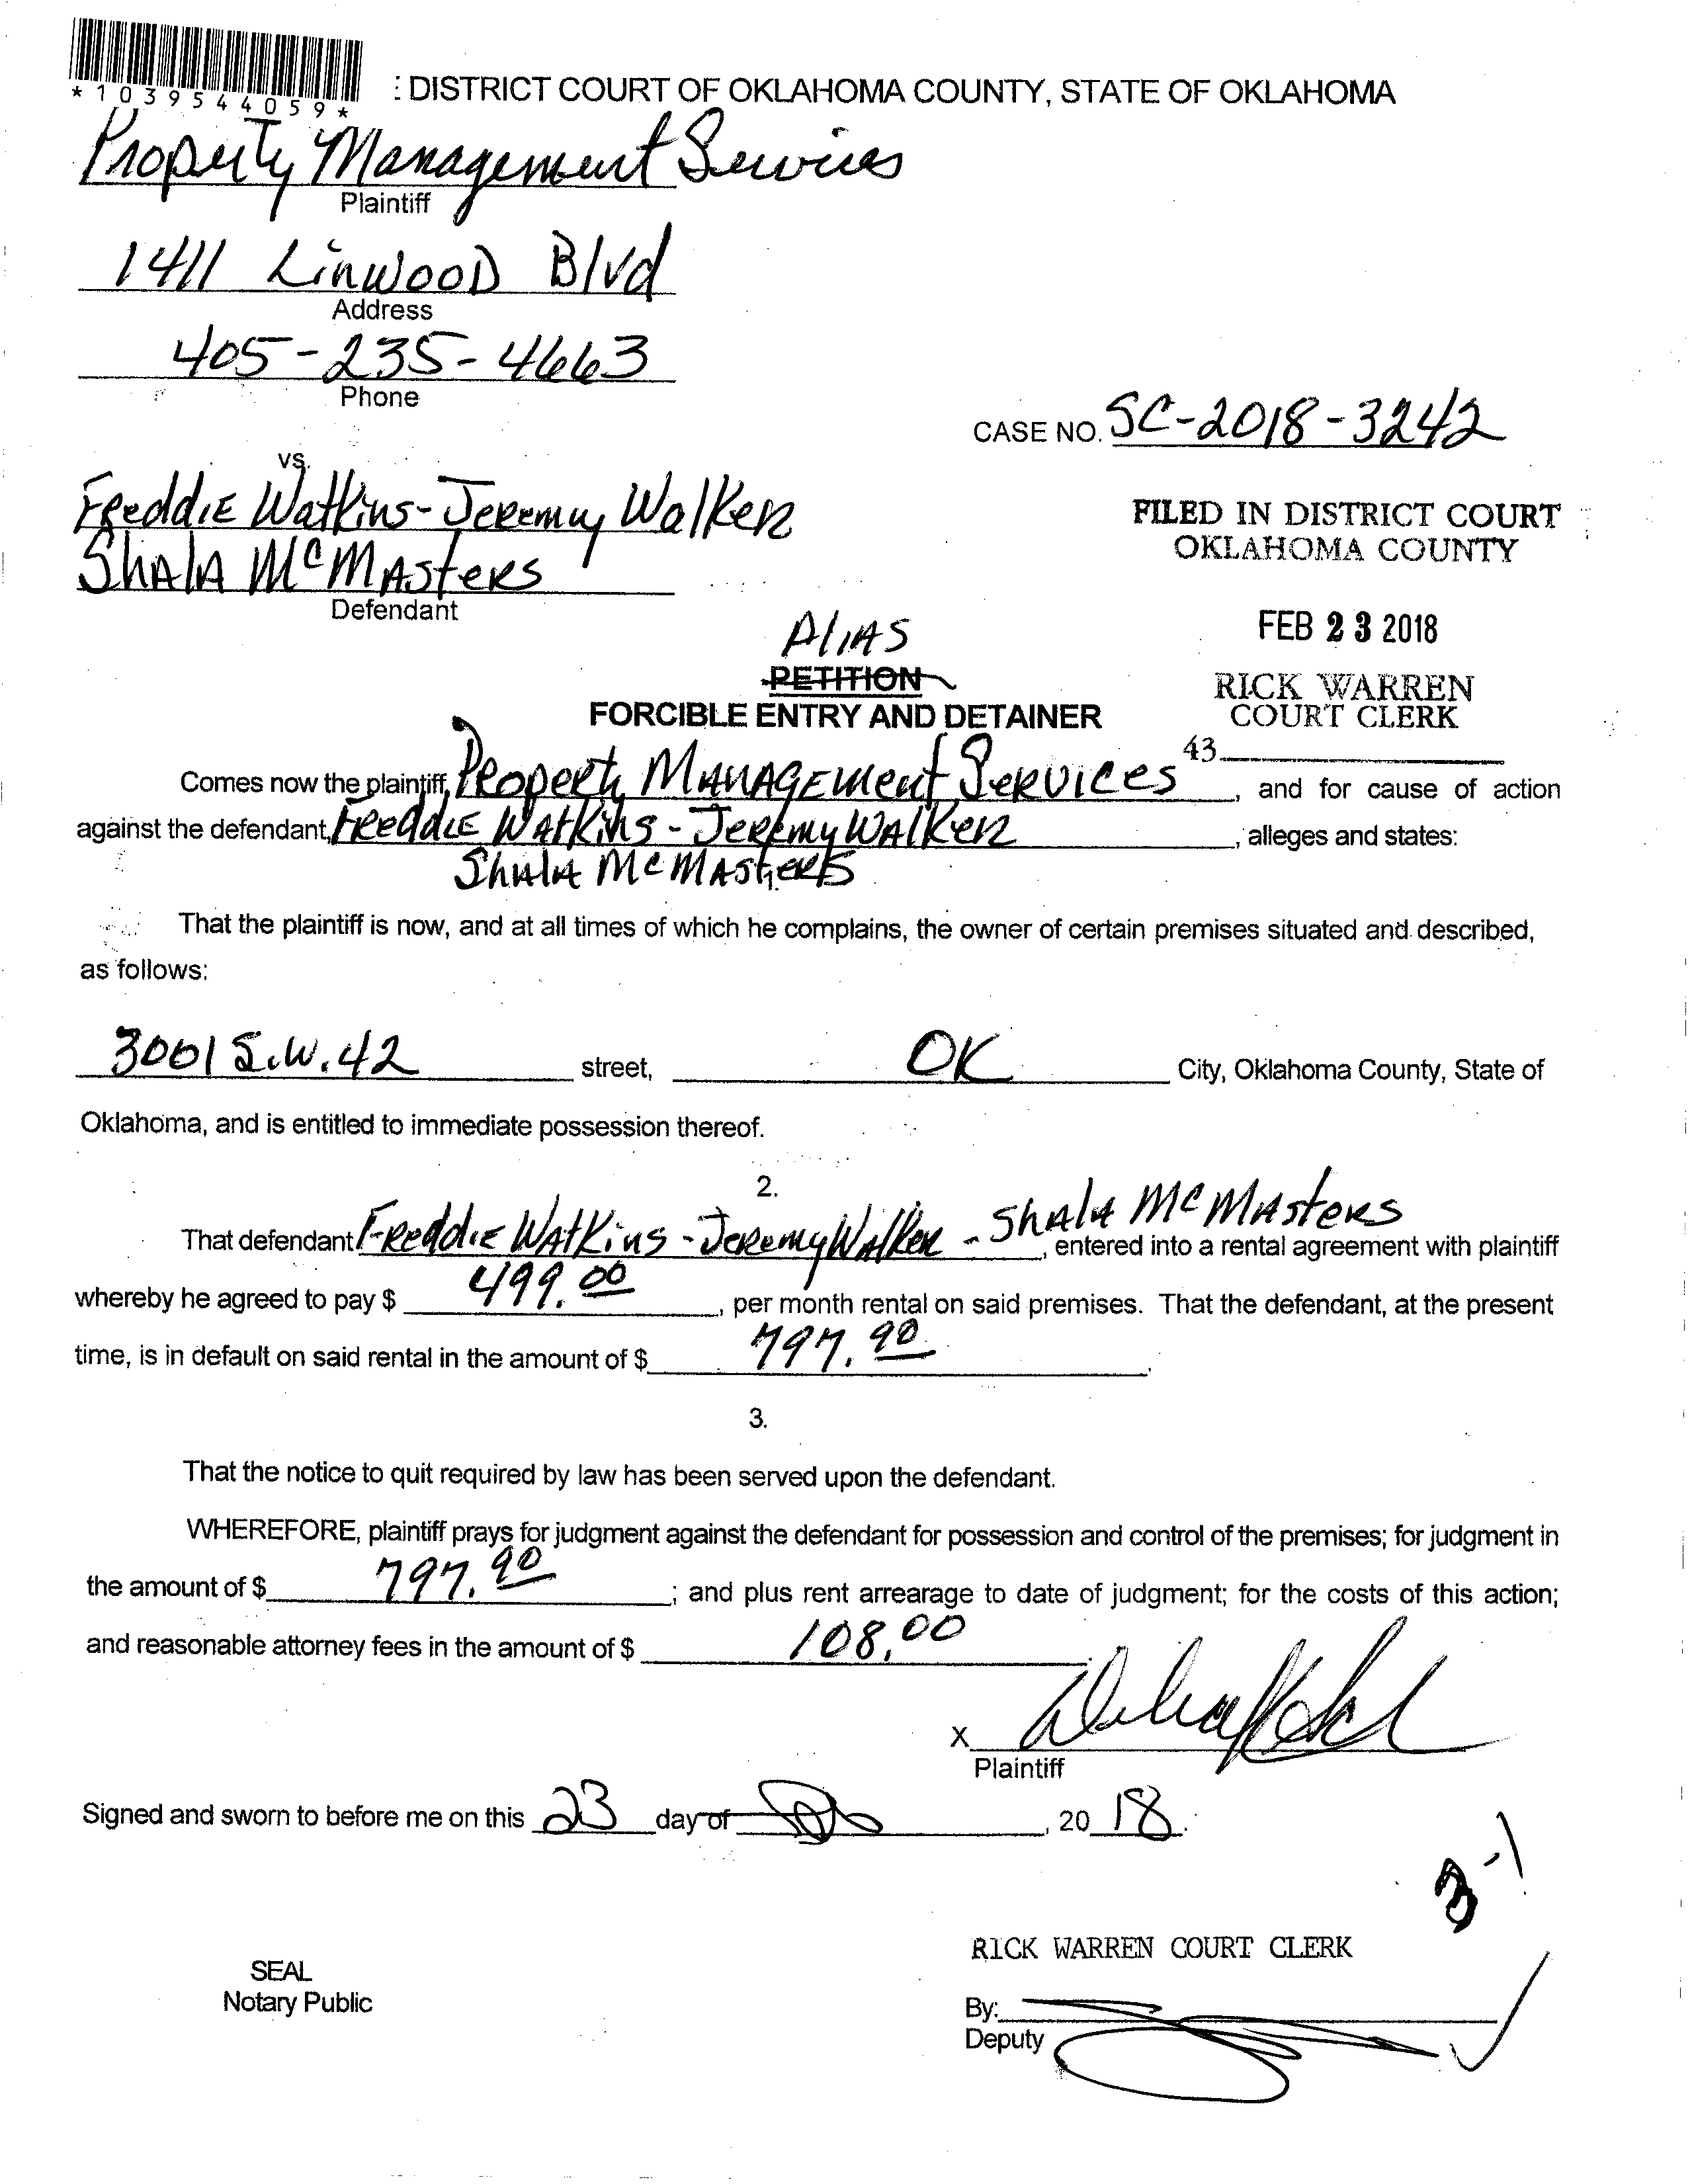 *1039544059*
: DISTRICT COURT OF OKLAHOMA COUNTY, STATE OF OKLAHOMA
Property Management Services
Plaintiff
1411 Linwood Blvd
Address
405-235-4663
Phone
CASE NO. SC-2018-3242
vs.
Freddie Watkins-Jeremy Walker
Shala McMasters
Defendant
FILED IN DISTRICT COURT
OKLAHOMA COUNTY
FEB 23 2018
RICK WARREN
COURT CLERK
43
Alias
PETITION
FORCIBLE ENTRY AND DETAINER
Comes now the plaintiff, Property Management Services, and for cause of action
against the defendant, Freddie Watkins - Jeremy Walker, alleges and states:
Shala McMasters
That the plaintiff is now, and at all times of which he complains, the owner of certain premises situated and described,
as follows:
3001 S.W. 42 street, OK City, Oklahoma County, State of
Oklahoma, and is entitled to immediate possession thereof.
2.
That defendant Freddie Watkins - Jeremy Walker - Shala McMasters, entered into a rental agreement with plaintiff
whereby he agreed to pay $ 499.00, per month rental on said premises. That the defendant, at the present
time, is in default on said rental in the amount of $ 797.90.
3.
That the notice to quit required by law has been served upon the defendant.
WHEREFORE, plaintiff prays for judgment against the defendant for possession and control of the premises; for judgment in
the amount of $ 797.90; and plus rent arrearage to date of judgment; for the costs of this action;
and reasonable attorney fees in the amount of $ 108.00.
X
Plaintiff
Signed and sworn to before me on this 23 day of , 2018.
3-1
RICK WARREN COURT CLERK
SEAL
Notary Public
By:
Deputy